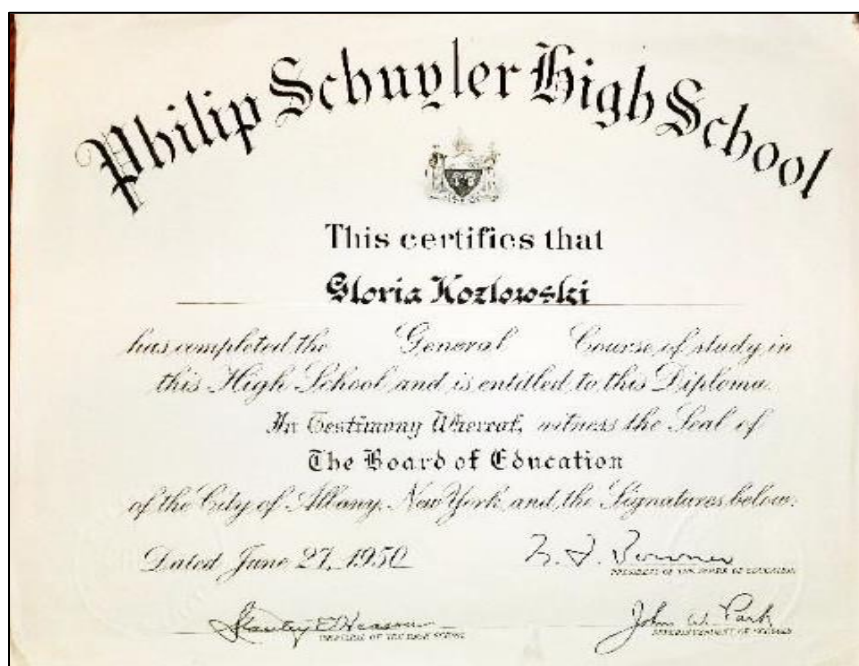 Philip Schuyler High School
This certifies that
Gloria Kozlowski
has completed the General Course of study in
this High School and is entitled to this Diploma
In Testimony Whereof, witness the Seal of
The Board of Education
of the City of Albany, New York, and the Signatures below.
Dated June 27, 1950
PRESIDENT OF THE BOARD OF EDUCATION
Stanley E. Heason John W. Park
PRINCIPAL OF THE HIGH SCHOOL SUPERINTENDENT OF SCHOOLS